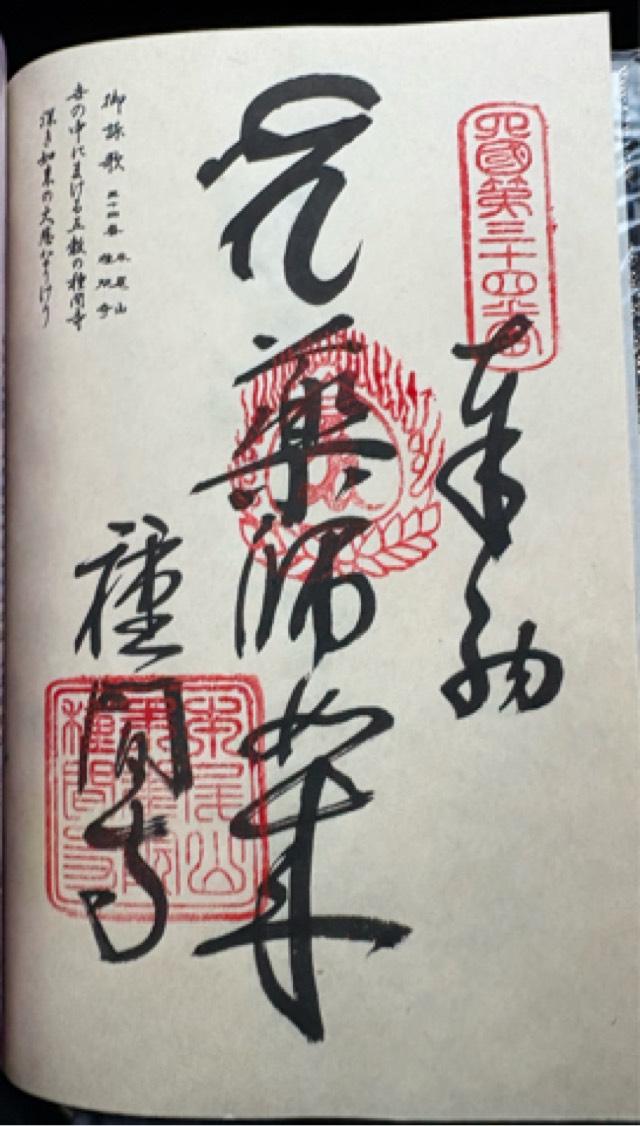 四國第三十四番
奉納
薬師如来
種間寺
本尾山
種間寺
御詠歌 三十四番 本尾山 種間寺
世の中にまける五穀の種間寺
深き如来の大悲なりけり